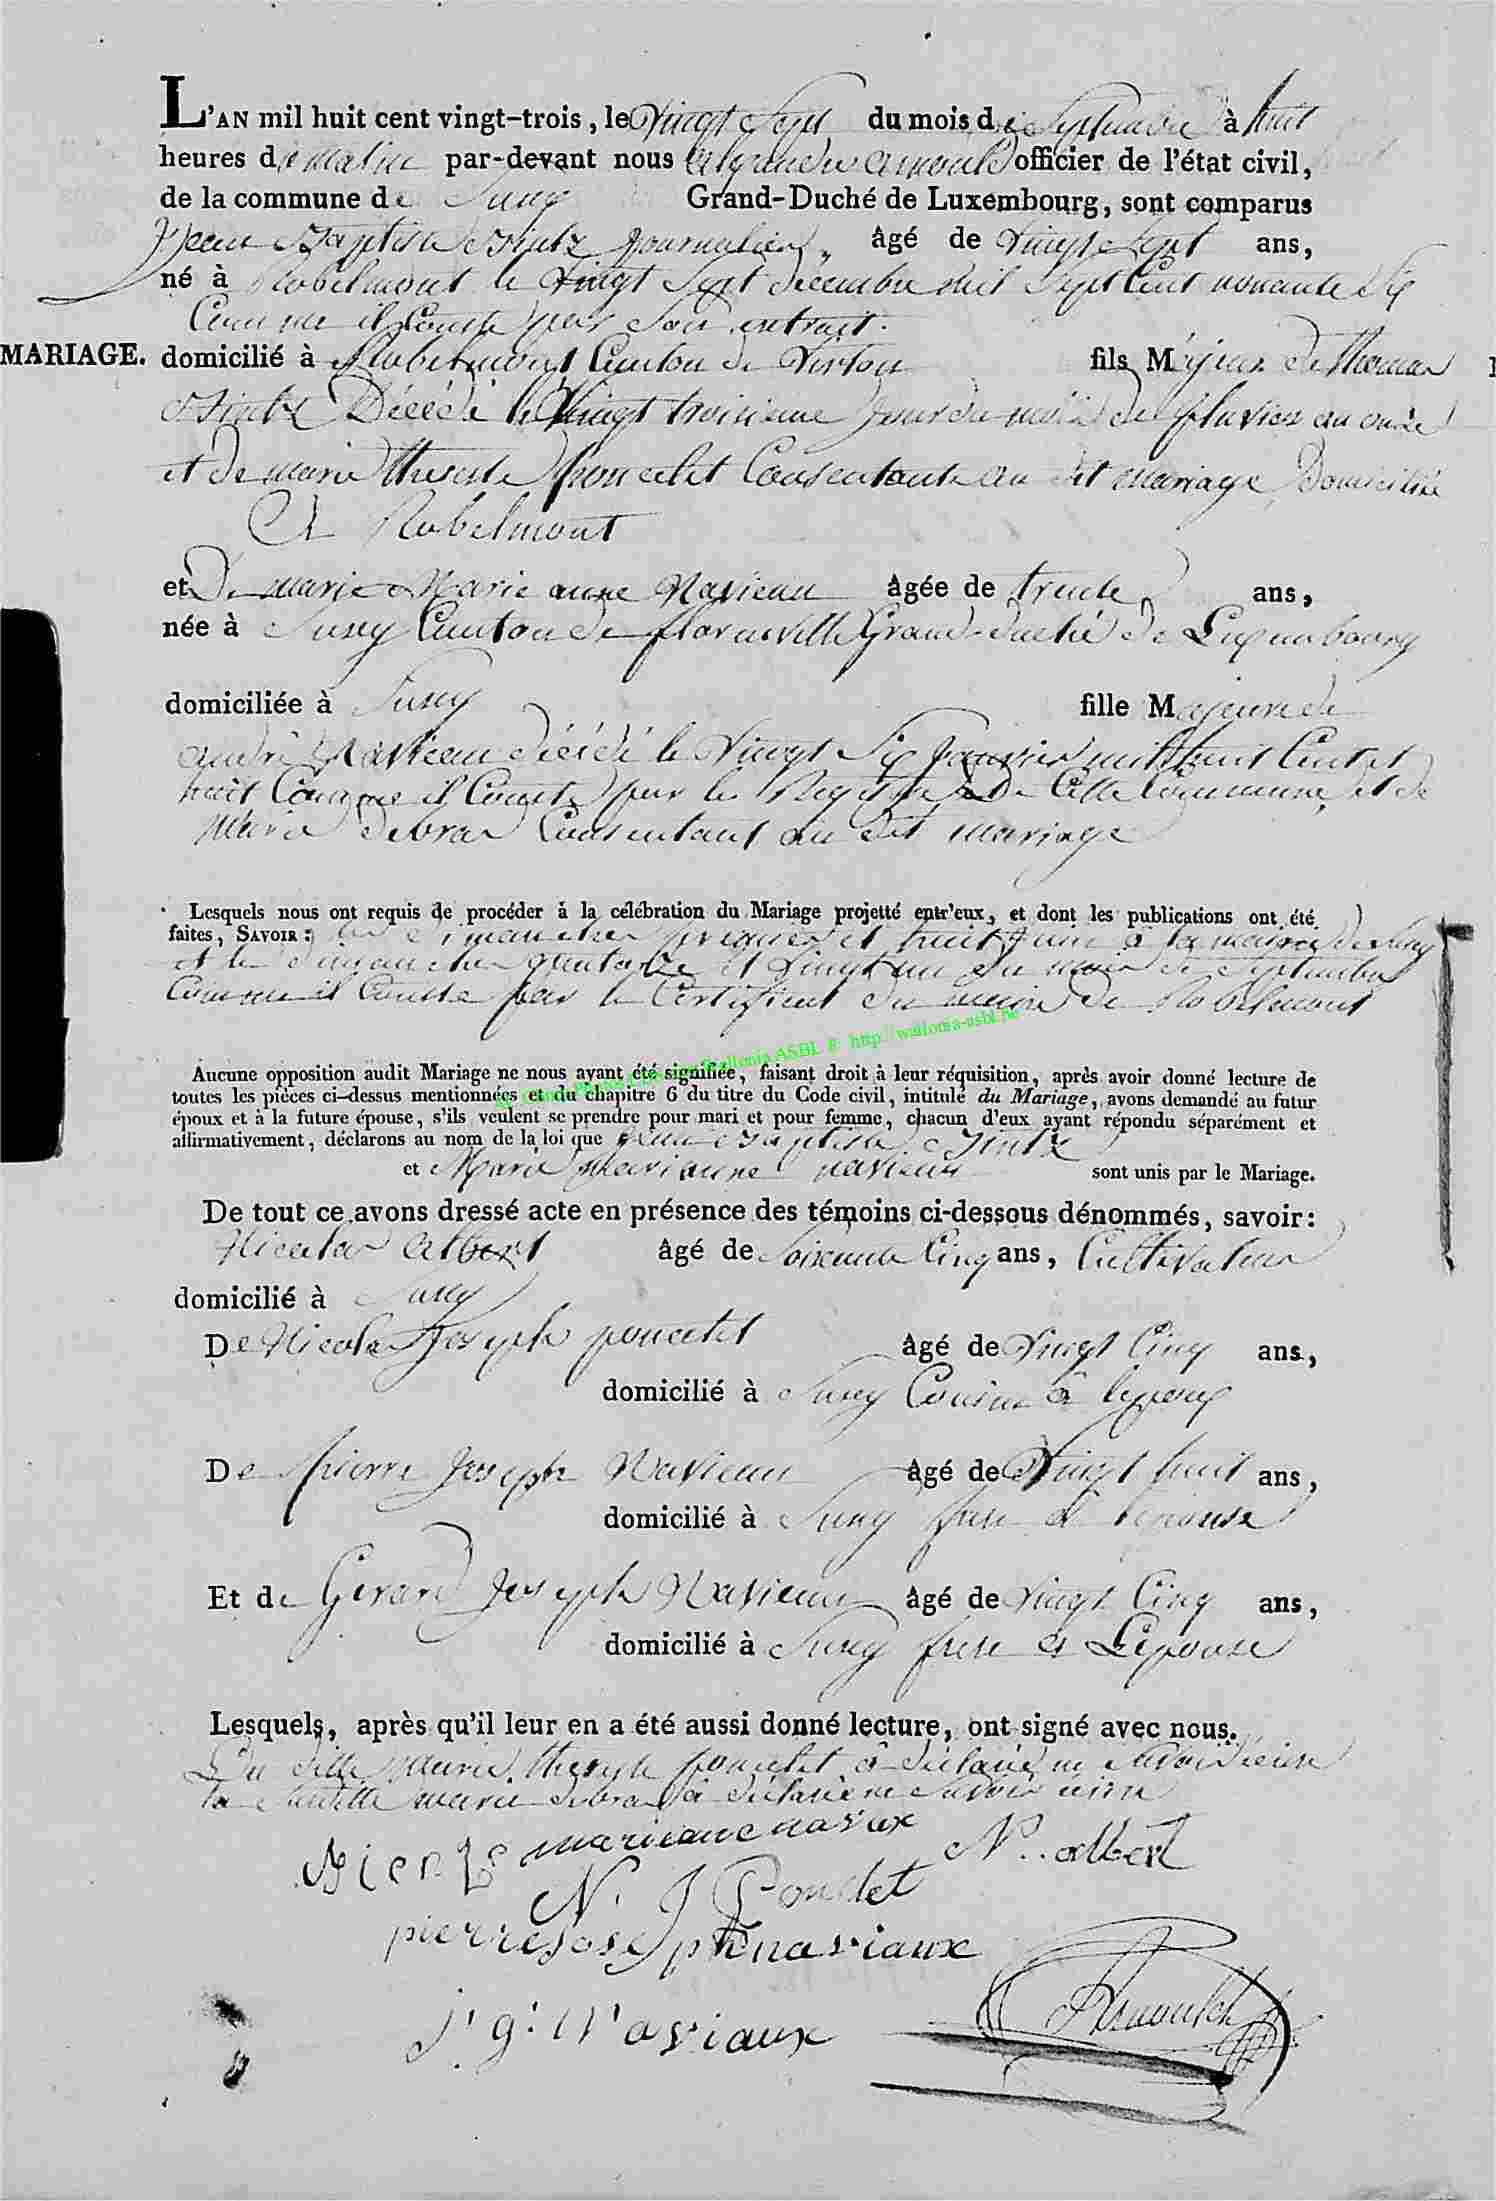 L'AN mil huit cent vingt-trois, le Vingt Sept du mois de Septembre à huit
heures de matin par-devant nous officier de l'état civil,
de la commune de Suxy Grand-Duché de Luxembourg, sont comparus
Jean Baptiste journalier âgé de Vingt Sept ans,
né à Robelmont le Vingt Sept decembre mil Sept Cent nonante Six
Comme il Conste par Son extrait.
MARIAGE. domicilié à Robelmont Canton de Virton fils Majeur de Thomas
Décédé le Vingt troisieme jour du mois de pluviose an onze
et de marie therese poncelet Consentante au dit mariage Domiciliée
A Robelmont
et De marie Marie anne Navieau âgée de trente ans,
née à Suxy Canton de florenville Grand-duché de Luxembourg
domiciliée à Suxy fille Majeure de
andré Navieau décédé le Vingt Six Janvier mil huit Cent et
huit Comme il Conste par les Registres De Cette Commune, et de
Marie debras Consentant au dit mariage
Lesquels nous ont requis de procéder à la célébration du Mariage projetté entr'eux, et dont les publications ont été
faites, SAVOIR : les dimanches premier et huit Juin à la mairie de Suxy
et les dimanches quatorze et Vingt un du mois de Septembre
Comme il Conste par le Certificat du maire de Robelmont
http://wallonia-asbl.be
Aucune opposition audit Mariage ne nous ayant été signifiée, faisant droit à leur réquisition, après avoir donné lecture de
toutes les pièces ci-dessus mentionnées et du chapitre 6 du titre du Code civil, intitulé du Mariage, avons demandé au futur
époux et à la future épouse, s'ils veulent se prendre pour mari et pour femme, chacun d'eux ayant répondu séparément et
affirmativement, déclarons au nom de la loi que Jean Baptiste
et Marie marianne navieau sont unis par le Mariage.
De tout ce avons dressé acte en présence des témoins ci-dessous dénommés, savoir:
Nicolas Albert âgé de Soixante Cinq ans, Cultivateur
domicilié à Suxy
De Nicolas Joseph poncelet âgé de Vingt Cinq ans,
domicilié à Suxy Cousin à lepoux
De pierre Joseph Navieau âgé de Vingt huit ans,
domicilié à Suxy frere à lepouse
Et de Gerard Joseph Navieau âgé de Vingt Cinq ans,
domicilié à Suxy frere à Lepouse
Lesquels, après qu'il leur en a été aussi donné lecture, ont signé avec nous.
La ditte marie therese poncelet à déclaré ne Savoir Ecrire
la Susditte marie debras à déclaré ne Savoir ecrire
marieane naviux
N. albert
N J Poncelet
pierre Joseph naviaux
j. g. Naviaux